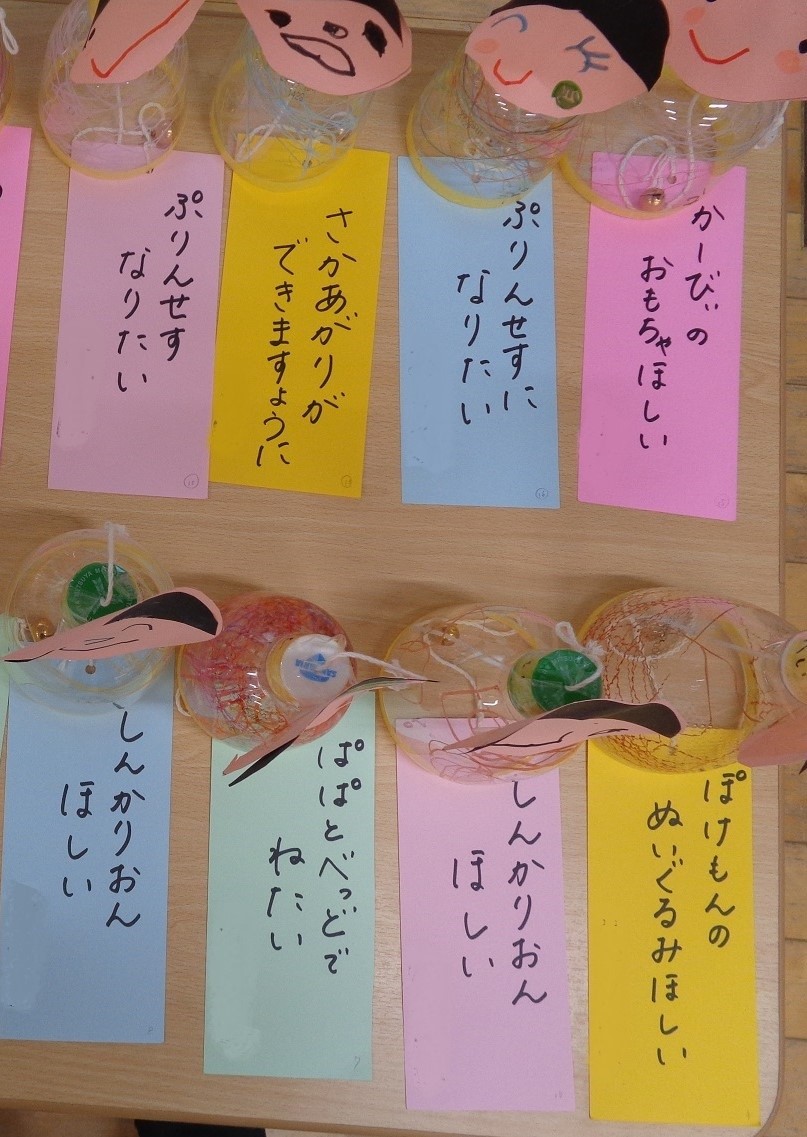 かーびぃの
おもちゃほしい
ぷりんせすに
なりたい
さかあがりが
できますょうに
ぷりんせす
なりたい
ぽけもんの
ぬいぐるみほしい
しんかりおん
ほしい
ぱぱとべっどで
ねたい
しんかりおん
ほしい